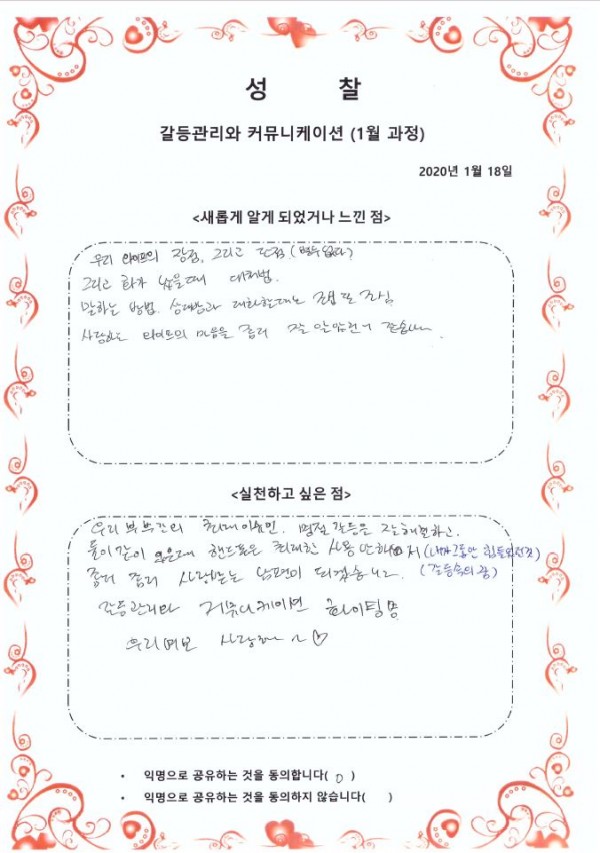 성 찰
갈등관리와 커뮤니케이션 (1월 과정)
2020년 1월 18일
<새롭게 알게 되었거나 느낀 점>
우리 와이프의 장점, 그리고 단점(
그리고 화가 났을때 대처법.
말하는 방법. 상대방과 대화할때는
사랑하는 와이프의 마음을 좀더 잘
<실천하고 싶은 점>
우리 부부간의 최대이슈인. 명절 갈등은 잘해결하고.
둘이같이 있을때 핸드폰은 최대한 사용 안하
좀더 사랑받는 남편이 되겠습니다 (갈등속의
갈등관리와 커뮤니케이션 화이팅
우리 여보 사랑해 ~ ♡
• 익명으로 공유하는 것을 동의합니다( O )
• 익명으로 공유하는 것을 동의하지 않습니다( )